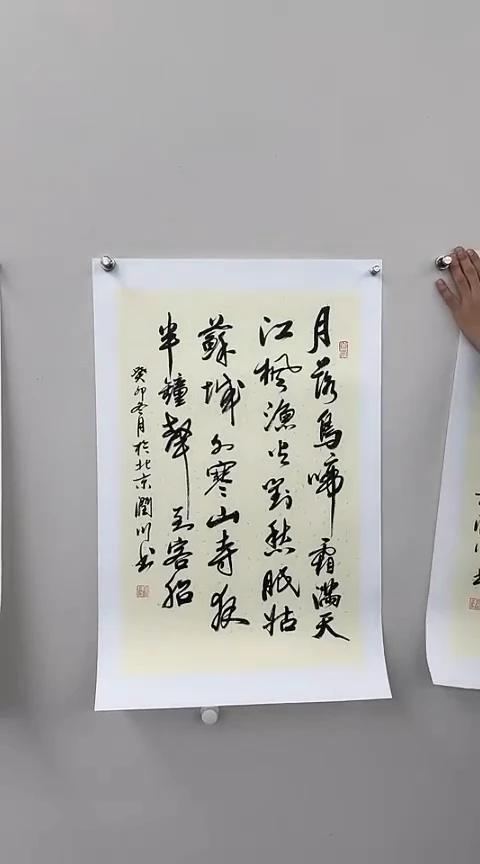 月落烏啼霜滿天
江楓漁火對愁眠姑
蘇城外寒山寺夜
半鐘聲到客船
癸卯冬月於北京潤川书